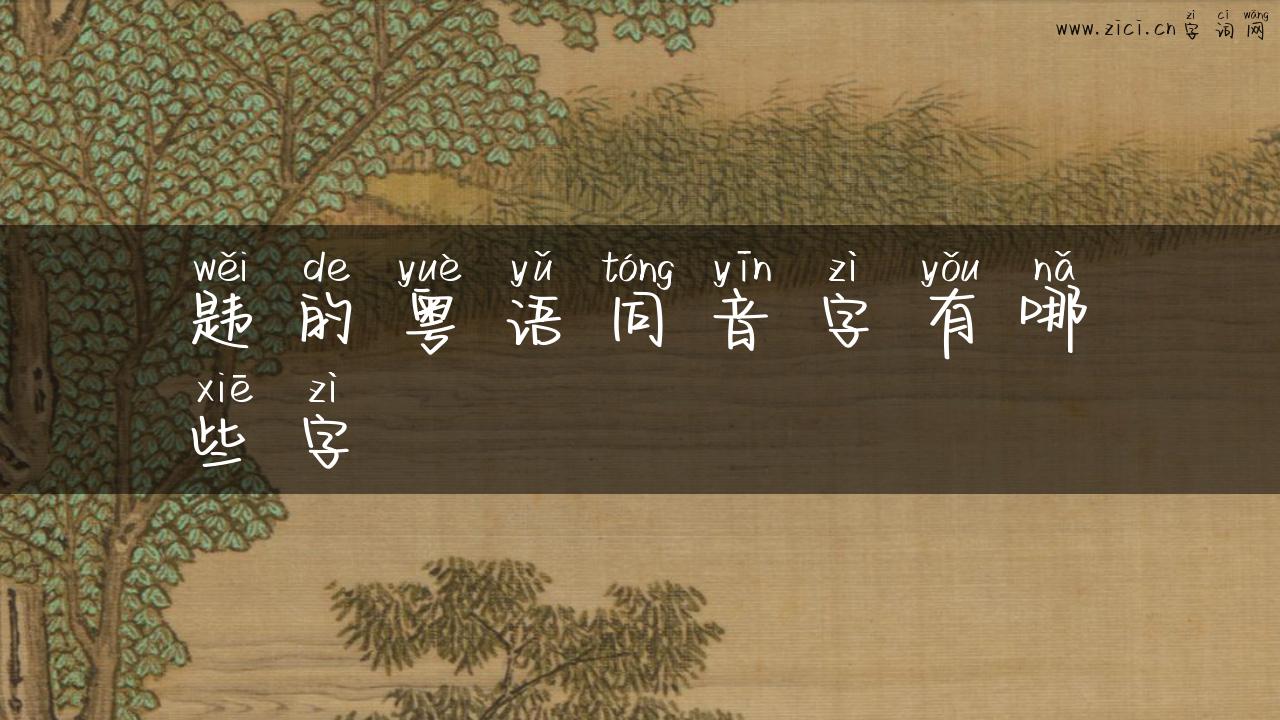 www.zici.cn字词网
zì cí wǎng
wěi de yuè yǔ tóng yīn zì yǒu nǎ
韪的粤语同音字有哪
xiē zì
些字